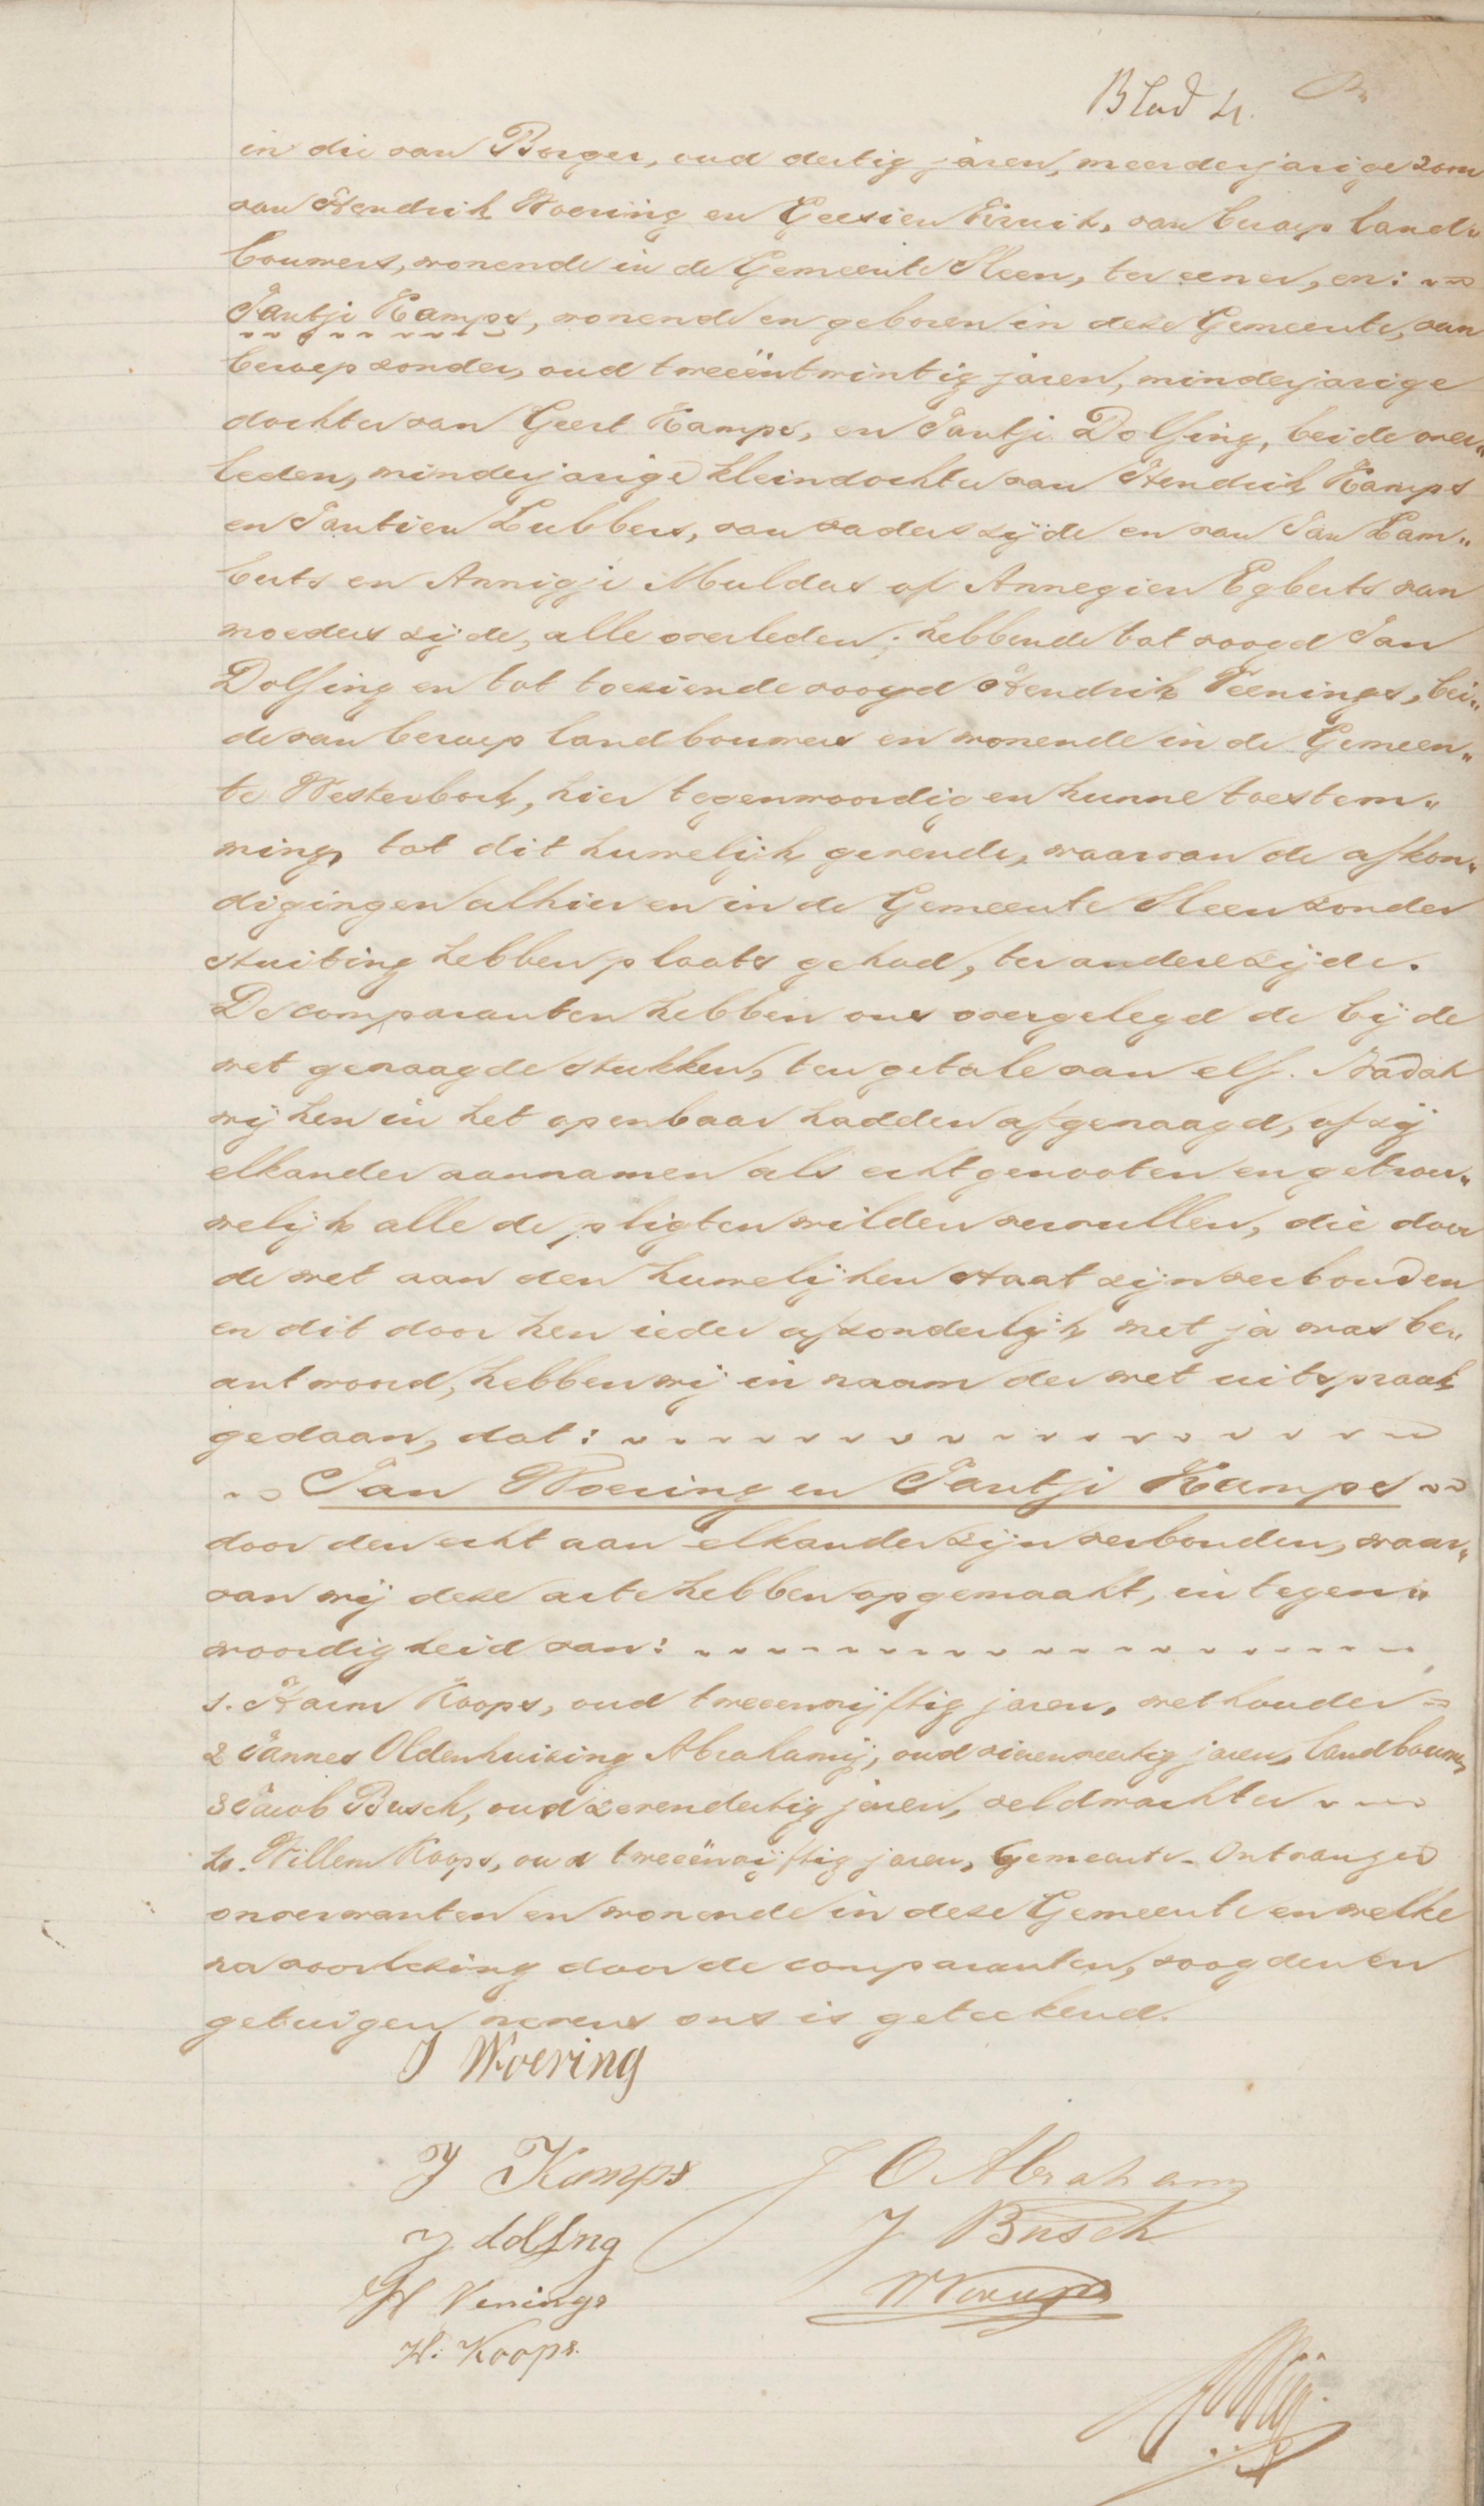 Blad 4.
in die van Borger, oud dertig jaren, meerderjarige zoon
van Hendrik Woering en Geesien Kruit, van beroep land„
bouwers, wonende in de Gemeente Sleen, ter eener, en:
Jantje Kamps, wonende en geboren in deze Gemeente, van
beroep zonder, oud tweeëntwintig jaren, minderjarige
dochter van Geert Kamps, en Jantje Dolfing, beide over„
leden, minderjarige kleindochter van Hendrik Kamps
en Jantien Lubbers, van vaders zijde en van Jan Lam„
berts en Annigje Mulders of Annegien Egberts van
moeders zijde, alle overleden; hebbende tot voogd Jan
Dolfing en tot toeziende voogd Hendrik Veenings, bei„
de van beroep landbouwers en wonende in de Gemeen„
te Westerbork, hier tegenwoordig en hunne toestem„
ming tot dit huwelijk gevende, waarvan de afkon„
digingen alhier en in de Gemeente Sleen zonder
stuiting hebben plaats gehad, ter andere zijde.
De comparanten hebben ons overgelegd de bij de
wet gevraagde stukken, ten getale van elf. Nadat
wij hen in het openbaar hadden afgevraagd, of zij
elkander aannamen als echtgenooten en getrou„
welijk alle de pligten wilden vervullen, die door
de wet aan den huwelijken staat zijn verbonden
en dit door hen ieder afzonderlijk met ja was be„
antwoord, hebben wij in naam der wet uitspraak
gedaan, dat:
Jan Woering en Jantje Kamps
door den echt aan elkander zijn verbonden, waar„
van wij deze acte hebben opgemaakt, in tegen„
woordigheid van:
1. Harm Koops, oud tweeenvijftig jaren, wethouder
2 Jannes Oldenhuizing Abrahamij, oud vierenveertig jaren, landbouwer,
3 Jacob Busch, oud zevendertig jaren, veldwachter
4. Willem Koops, oud tweeënvijftig jaren, Gemeente-Ontvanger
onverwanten en wonende in deze Gemeente en welke
na voorlezing door de comparanten, voogden en
getuigen nevens ons is geteekend.
J Woering
J Kamps J O Abrahamij
J dolfing J Busch
H Venings W Koops
H. Koops.